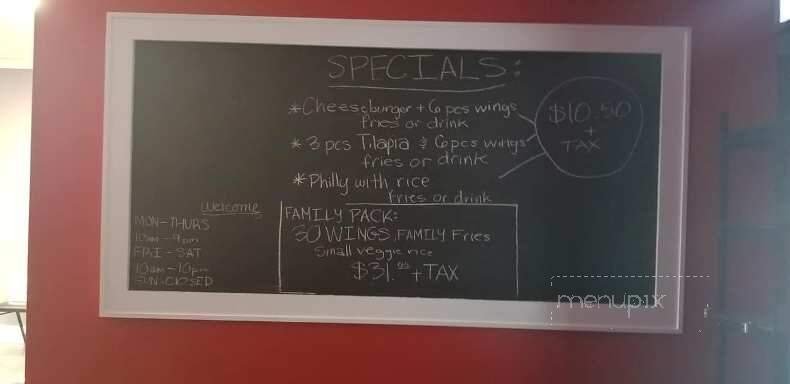 SPECIALS:
*Cheeseburger + 6 pcs wings
fries or drink
* 3 pcs Tilapia & 6 pcs wings
fries or drink
*Philly with rice
fries or drink
$10.50
+
TAX
Welcome
MON-THURS
10am-9pm
FRI-SAT
10am-10pm
SUN-CLOSED
FAMILY PACK:
30 WINGS, FAMILY Fries
Small veggie rice
$31.99 + TAX
menupix